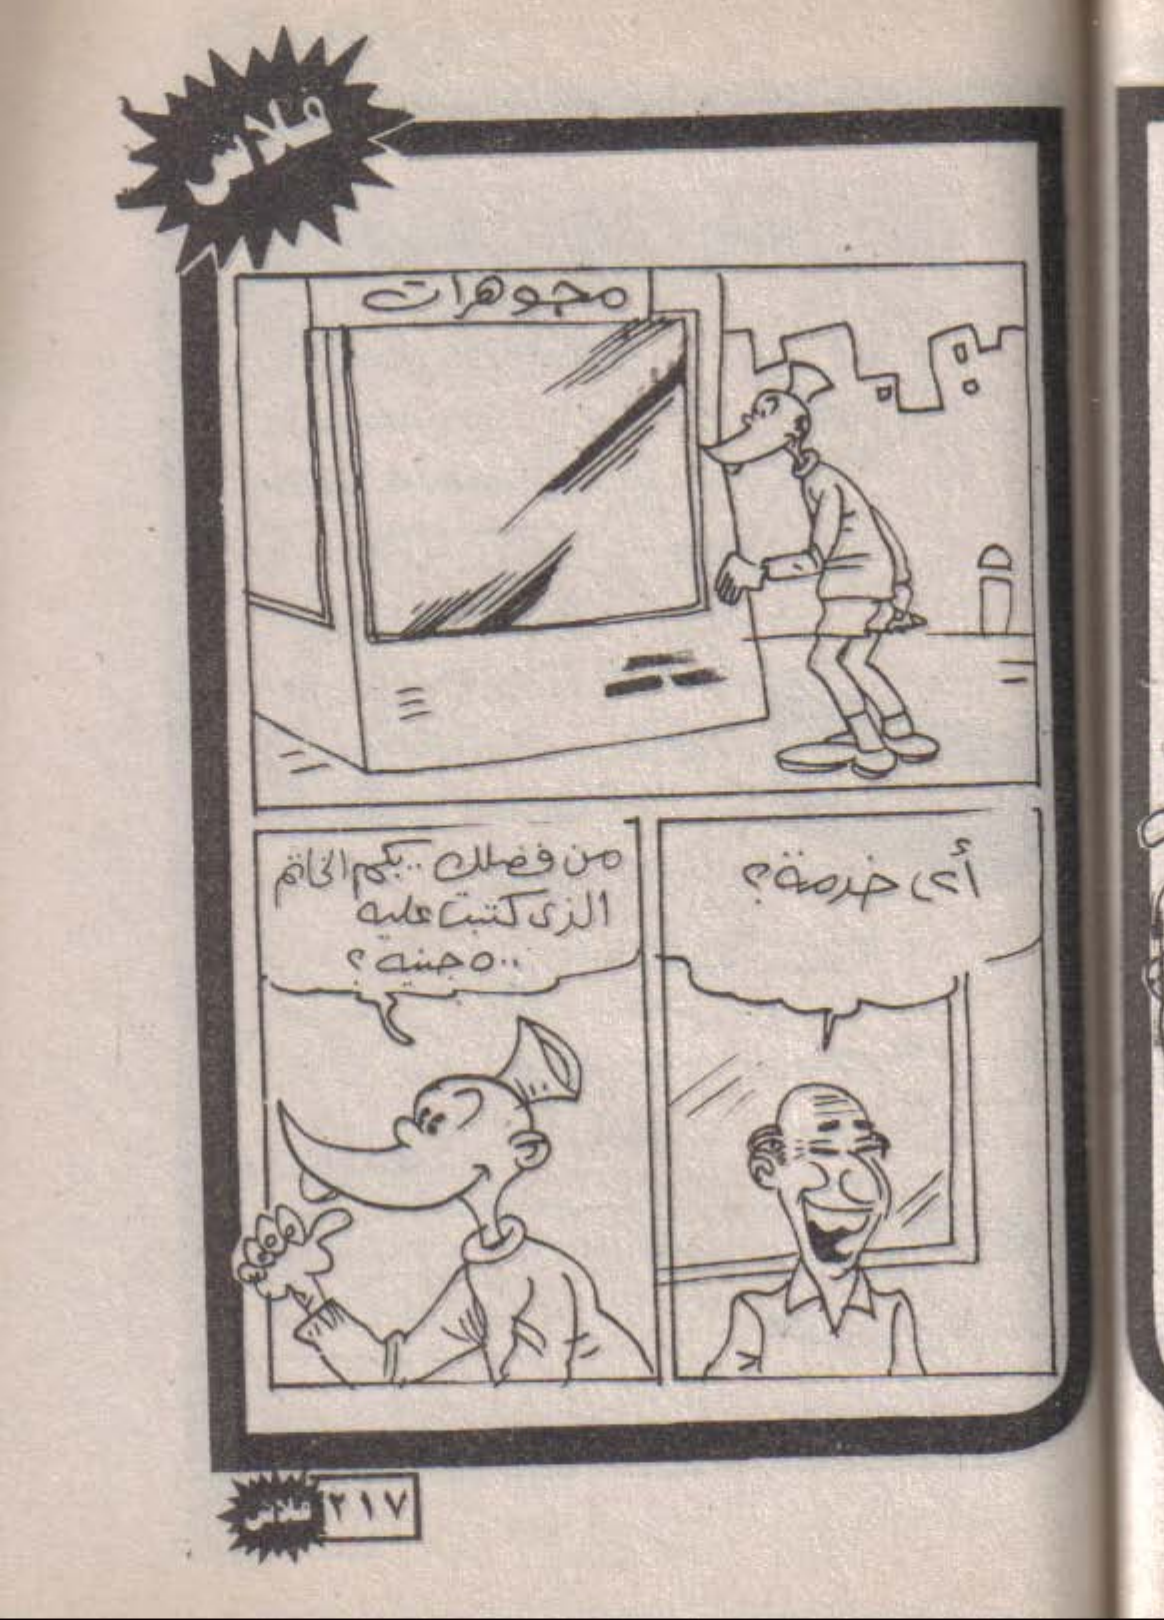 فلاش
مجوهرات
أى خدمة؟
من فضلك .. بكم الخاتم
الذى كتبت عليه
٥٠٠ جنيه؟
فلاش ٢١٧